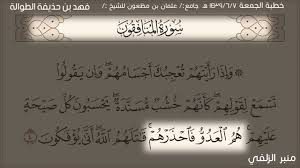 خطبة الجمعة ١٤٣٩/٦/٧ هـ جامع:/ عثمان بن مظعون للشيخ :/ فهد بن حذيفة الطوالة
سُورَةُ المُنَافِقُونَ
وَإِذَا رَأَيْتَهُمْ تُعْجِبُكَ أَجْسَامُهُمْ وَإِن يَقُولُوا
تَسْمَعْ لِقَوْلِهِمْ كَأَنَّهُمْ خُشُبٌ مُّسَنَّدَةٌ يَحْسَبُونَ كُلَّ صَيْحَةٍ
عَلَيْهِمْ هُمُ الْعَدُوُّ فَاحْذَرْهُمْ قَاتَلَهُمُ اللَّهُ أَنَّى يُؤْفَكُونَ
منبر الزلفي